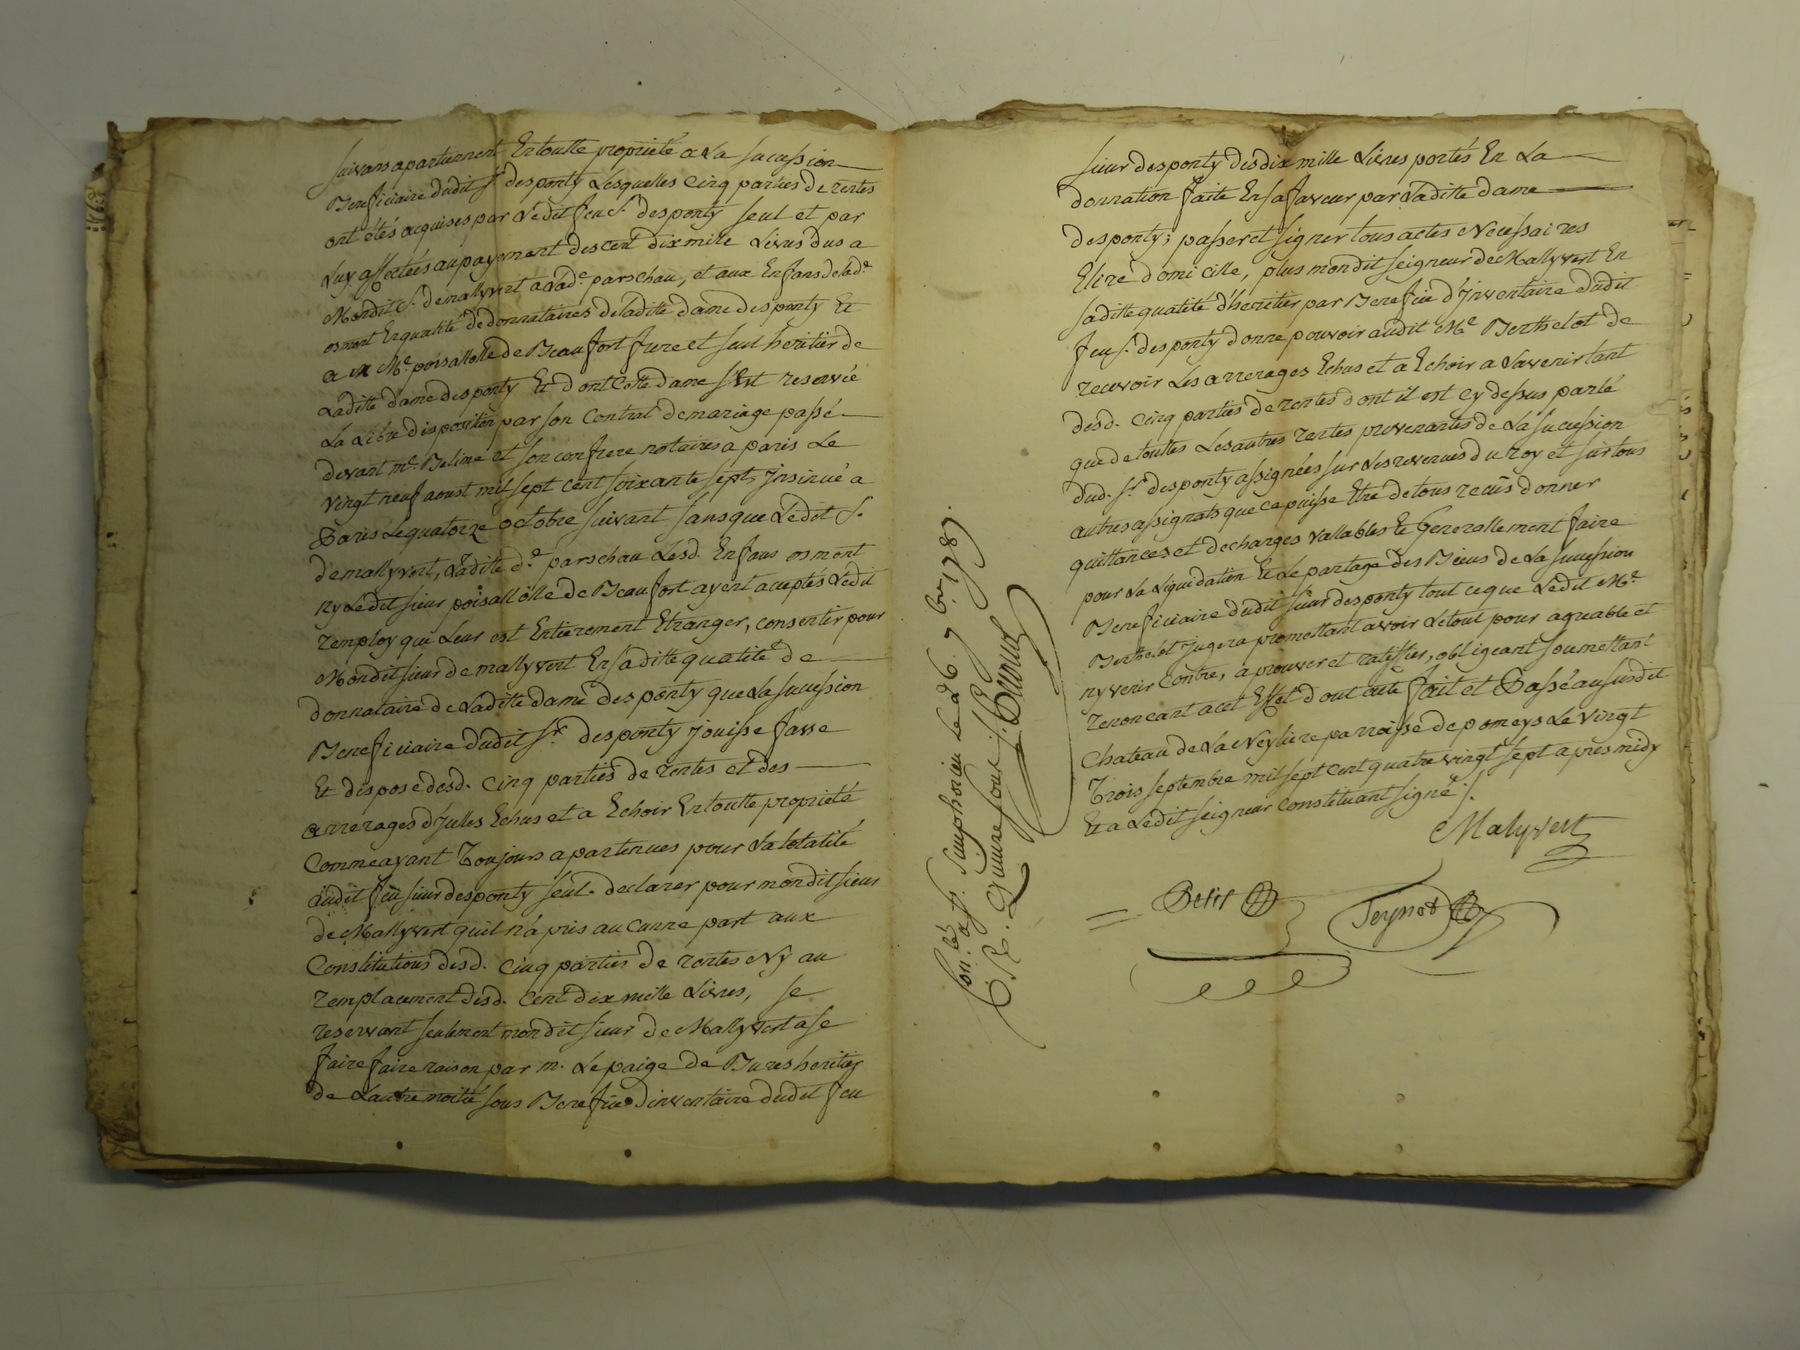 suivans apartiennent En toutte propriété a La sucession
Beneficiaire dudit Sr. desponty Lesquelles cinq parties de rentes
ont étés acquises par Ledit feu S. desponty seul et par
Luy affectées au payement des cent dix mille Livres dus a
Mondit S. de mallyvert a Lade. parschau, et aux Enfans de lade.
osmont En qualité de donnataires de laditte dame desponty Et
a Mr. poisallolle de Beaufort frere et seul héritier de
Laditte dame desponty Et dont cette dame s'Est reservée
La Libre disposition par son contrat de mariage passé
devant me. Beline et son confrere notaires a paris Le
vingt neuf aoust mil sept cent soixante sept, Insinué a
Paris Le quatorze octobre suivant sans que Ledit S.
de mallyvert, Laditte de. parschau Lesd. Enfans osmont
ny Ledit sieur poisallolle de Beaufort ayent aceptés Ledit
remploy qui Leur est Entierement Etranger, consentir pour
Mondit sieur de mallyvert En saditte qualité de
donnataire de Laditte dame desponty que La sucession
Beneficiaire dudit Sr. desponty jouisse fasse
Et dispose desd. cinq parties de rentes et des
arrerages d'Iulles Echus et a Echoir En toutte propriété
Comme ayant Toujours apartenues pour La totalité
dudit feu sieur desponty seul. declarer pour mondit sieur
de Mallyvert qu'il n'à pris aucunne part aux
Constitutions desd. cinq parties de rentes Ny au
remplacement desd. cent dix mille Livres, se
reservant seulement mondit sieur de Mallyvert a se
faire faire raison par m. Le paige de Bures heritier
de Lautre moitié sous Benefice d'inventaire dudit feu
sieur desponty des dix mille Livres portés En La
donnation faite En sa faveur par Laditte dame
desponty; passer et signer tous actes Nécessaires
Elire domicille, plus mondit seigneur de Mallyvert En
saditte qualité d'heritier par Benefice d'Inventaire dudit
feu S. desponty donne pouvoir audit Me. Berthelot de
recevoir Les arrerages Echus et a Echoir a L'avenir tant
desd. cinq parties de rentes dont il est cy dessus parlé
que de touttes Les autres rentes provenantes de La sucession
dud. Sr. desponty assignées sur Les revenus du roy et sur tous
autres assignats que ce puisse Etre de tous recûs donner
quittances et decharges vallables Et Generallement faire
pour La Liquidation Et Le partage des Biens de La sucession
Beneficiaire dudit sieur desponty tout ce que Ledit Me.
Berthelot Jugera promettant avoir Le tout pour agreable et
ny venir contre, aprouver et ratiffier, obligeant soumettant
renoncant a cet Effet dont acte fait et Passé au susdit
Chateau de La Neyliere parroisse de pomeys Le vingt
Trois septembre mil sept cent quatre vingt sept après midy
Et a Ledit seigneur constituant signé ./.
Malyvert
Petit
Teynod
Con.lé a St. Simphorien Le 26. 7bre 1787.
R. Quinze sous